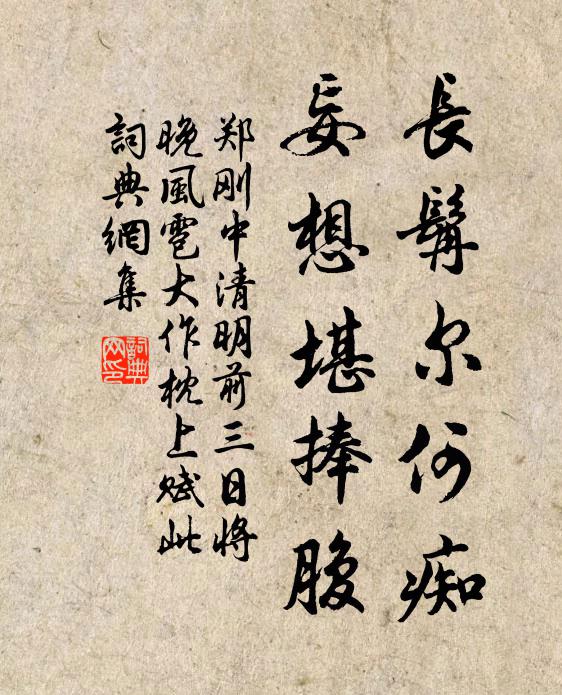 長鬅尔何痴
妄想堪捧腹
郑刚中清明前三日将
晚風雹大作枕上赋此
詞典網集
詞典
网印